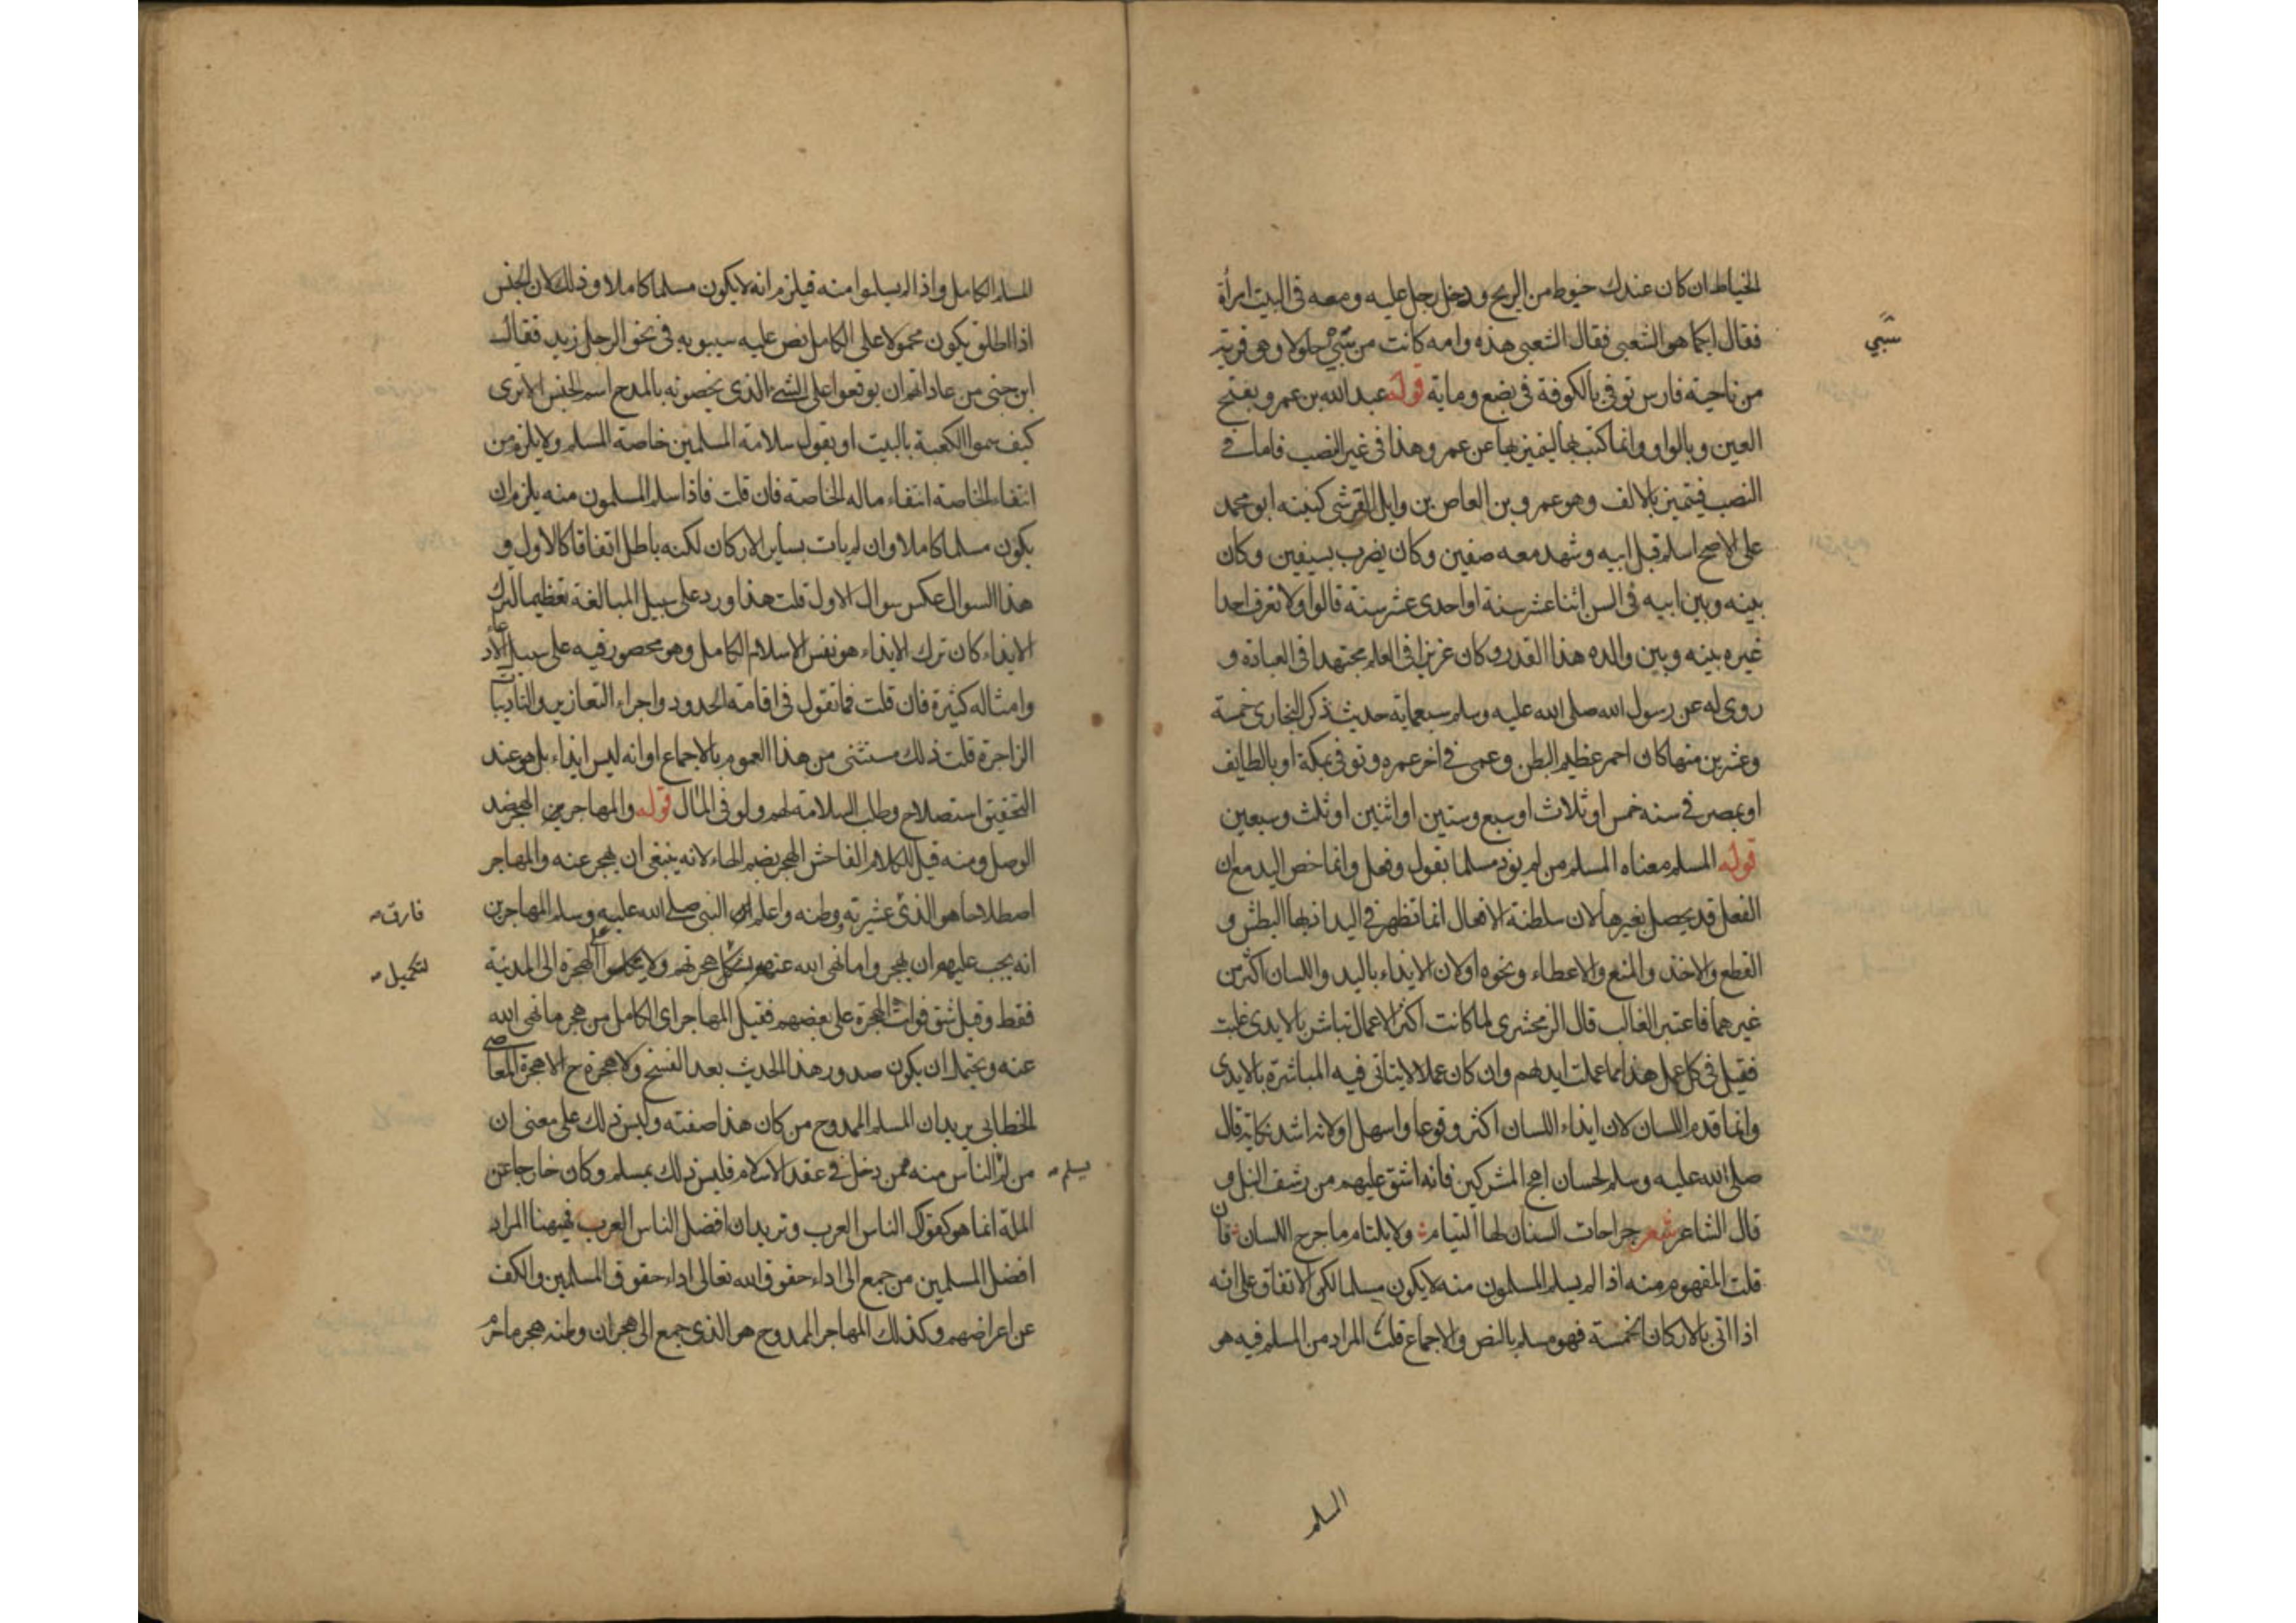 الخياط ان كان عندك خيوط من الريح ودخل رجل عليه ومعه فى البيت امرأة
فقال ايكما هو الشعبى فقال الشعبى هذه وامه كانت من سَبْي جلولا وهو قرية
سَبْي
من ناحية فارس توفى بالكوفة فى بضع وماية قوله عبد الله بن عمرو بفتح
العين وبالواو وانما كتب بها ليتميز بها عن عمر وهذا فى غير النصب فاما فى
النصب فيتميز بالالف وهو عمرو بن العاص بن وايل القرشى كنيته ابو محمد
على الاصح اسلم قبل ابيه وشهد معه صفين وكان يضرب بسيفين وكان
بينه وبين ابيه فى السن اثنا عشر سنة او احدى عشر سنة قالوا ولا نعرف احدا
غيره بينه وبين والده هذا القدر وكان غزيرا فى العلم مجتهدا فى العبادة و
روى له عن رسول الله صلى الله عليه وسلم سبعماية حديث ذكر البخارى خمسة
وعشرين منها كان احمر عظيم البطن وعمى فى اخر عمره وتوفى بمكة او بالطايف
او بمصر فى سنة خمس او ثلاث او سبع وستين او اثنين او ثلث وسبعين
قوله المسلم معناه المسلم من لم يوذ مسلما بقول وفعل وانما خص اليد مع ان
الفعل قد يحصل بغيرها لان سلطنة الافعال انما تظهر فى اليد اذ بها البطش و
القطع والاخذ والمنع والاعطاء ونحوه او لان الايذاء باليد واللسان اكثر من
غيرهما فاعتبر الغالب قال الزمخشرى لما كانت اكثر الاعمال تباشر بالايدى غلبت
فقيل فى كل عمل هذا مما عملت ايديهم وان كان عملا لا يتاتى فيه المباشرة بالايدى
وانما قدم اللسان لان ايذاء اللسان اكثر وقوعا واسهل او لانه اشد نكاية قال
صلى الله عليه وسلم لحسان اهج المشركين فانه اشق عليهم من رشق النبل و
قال الشاعر شعر جراحات السنان لها التيام ولا يلتام ما جرح اللسان فان
قلت المفهوم منه اذا لم يسلم المسلمون منه لا يكون مسلما لكن الاتفاق على انه
اذا اتى بالاركان الخمسة فهو مسلم بالنص والاجماع قلت المراد من المسلم فيه هو
المسلم
المسلم الكامل واذا لم يسلموا منه فيلزم انه لا يكون مسلما كاملا وذلك لان الجنس
اذا اطلق يكون محمولا على الكامل نص عليه سيبويه فى نحو الرجل زيد فقال
ابن جنى من عاداتهم ان يوقعوا على الشئ الذى يخصونه بالمدح اسم الجنس الا ترى
كيف سموا الكعبة بالبيت او يقول سلامة المسلمين خاصة المسلم ولا يلزم من
انتفاء الخاصة انتفاء ما له الخاصة فان قلت فاذا سلم المسلمون منه يلزم ان
يكون مسلما كاملا وان لم يات بساير الاركان لكنه باطل اتفاقا كالاول و
هذا السوال عكس سوال الاول قلت هذا ورد على سبيل المبالغة تعظيما لترك
الايذاء كان ترك الايذاء هو نفس الاسلام الكامل وهو محصور فيه على سبيل الادعاء
وامثاله كثيرة فان قلت فما تقول فى اقامة الحدود واجراء التعازير والتاديبات
الزاجرة قلت ذلك مستثنى من هذا العموم بالاجماع او انه ليس ايذاء بل هو عند
التحقيق استصلاح وطلب السلامة لهم ولو فى المآل قوله والمهاجر من الهجر ضد
الوصل ومنه قيل للكلام الفاحش الهجر بضم الهاء لانه ينبغى ان يهجر عنه والمهاجر
اصطلاحا هو الذى عشيرته ووطنه واعلم ان النبى صلى الله عليه وسلم المهاجرين
فارق
انه يجب عليهم ان يهجروا ما نهى الله عنه هجرتهم ولا الهجرة الى المدينة
لتكميل
فقط وقيل شق فوات الهجرة على بعضهم فقيل المهاجر اى الكامل من هجر ما نهى الله
عنه ويحتمل ان يكون صدور هذا الحديث بعد الفسخ ولا هجرة ح الا هجرة المعاصى
الخطابى يريد ان المسلم الممدوح من كان هذا صفته وليس ذلك على معنى ان
من لم الناس منه ممن دخل فى عقد الاسلام فليس ذلك بمسلم وكان خارجا عن
يسلم
الملة انما هو كقولك الناس العرب وتريد ان افضل الناس العرب فههنا المراد
افضل المسلمين من جمع الى اداء حقوق الله تعالى اداء حقوق المسلمين والكف
عن اعراضهم وكذلك المهاجر الممدوح هو الذى جمع الى هجران وطنه هجر ما حرم